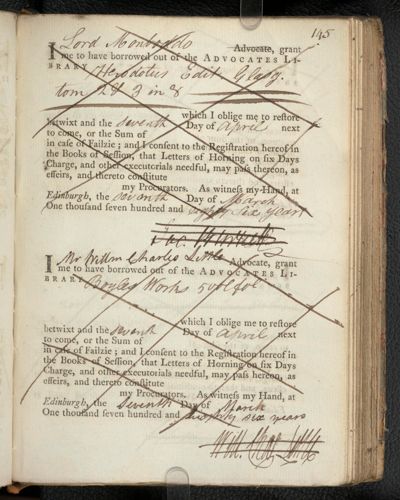 145
Lord Monboddo Advocate, grant
I me to have borrowed out of the ADVOCATES LI-
BRARY Herodotus Edit. Glasg.
tom 2d & 3 in 8
which I oblige me to restore
betwixt and the seventh Day of April next
to come, or the Sum of
in case of Failzie; and I consent to the Registration hereof in
the Books of Session, that Letters of Horning on six Days
Charge, and other executorials needful, may pass hereon, as
effeirs, and thereto constitute
my Procurators. As witness my Hand, at
Edinburgh, the seventh Day of March
One thousand seven hundred and eighty six years
I Mr Willm Charles Little Advocate, grant
me to have borrowed out of the ADVOCATES LI-
BRARY Boyles Works 5 vol fol
which I oblige me to restore
betwixt and the seventh Day of April next
to come, or the Sum of
in case of Failzie; and I consent to the Registration hereof in
the Books of Session, that Letters of Horning on six Days
Charge, and other executorials needful, may pass hereon, as
effeirs, and thereto constitute
my Procurators. As witness my Hand, at
Edinburgh, the seventh Day of March
One thousand seven hundred and eighty six years
Will. Little